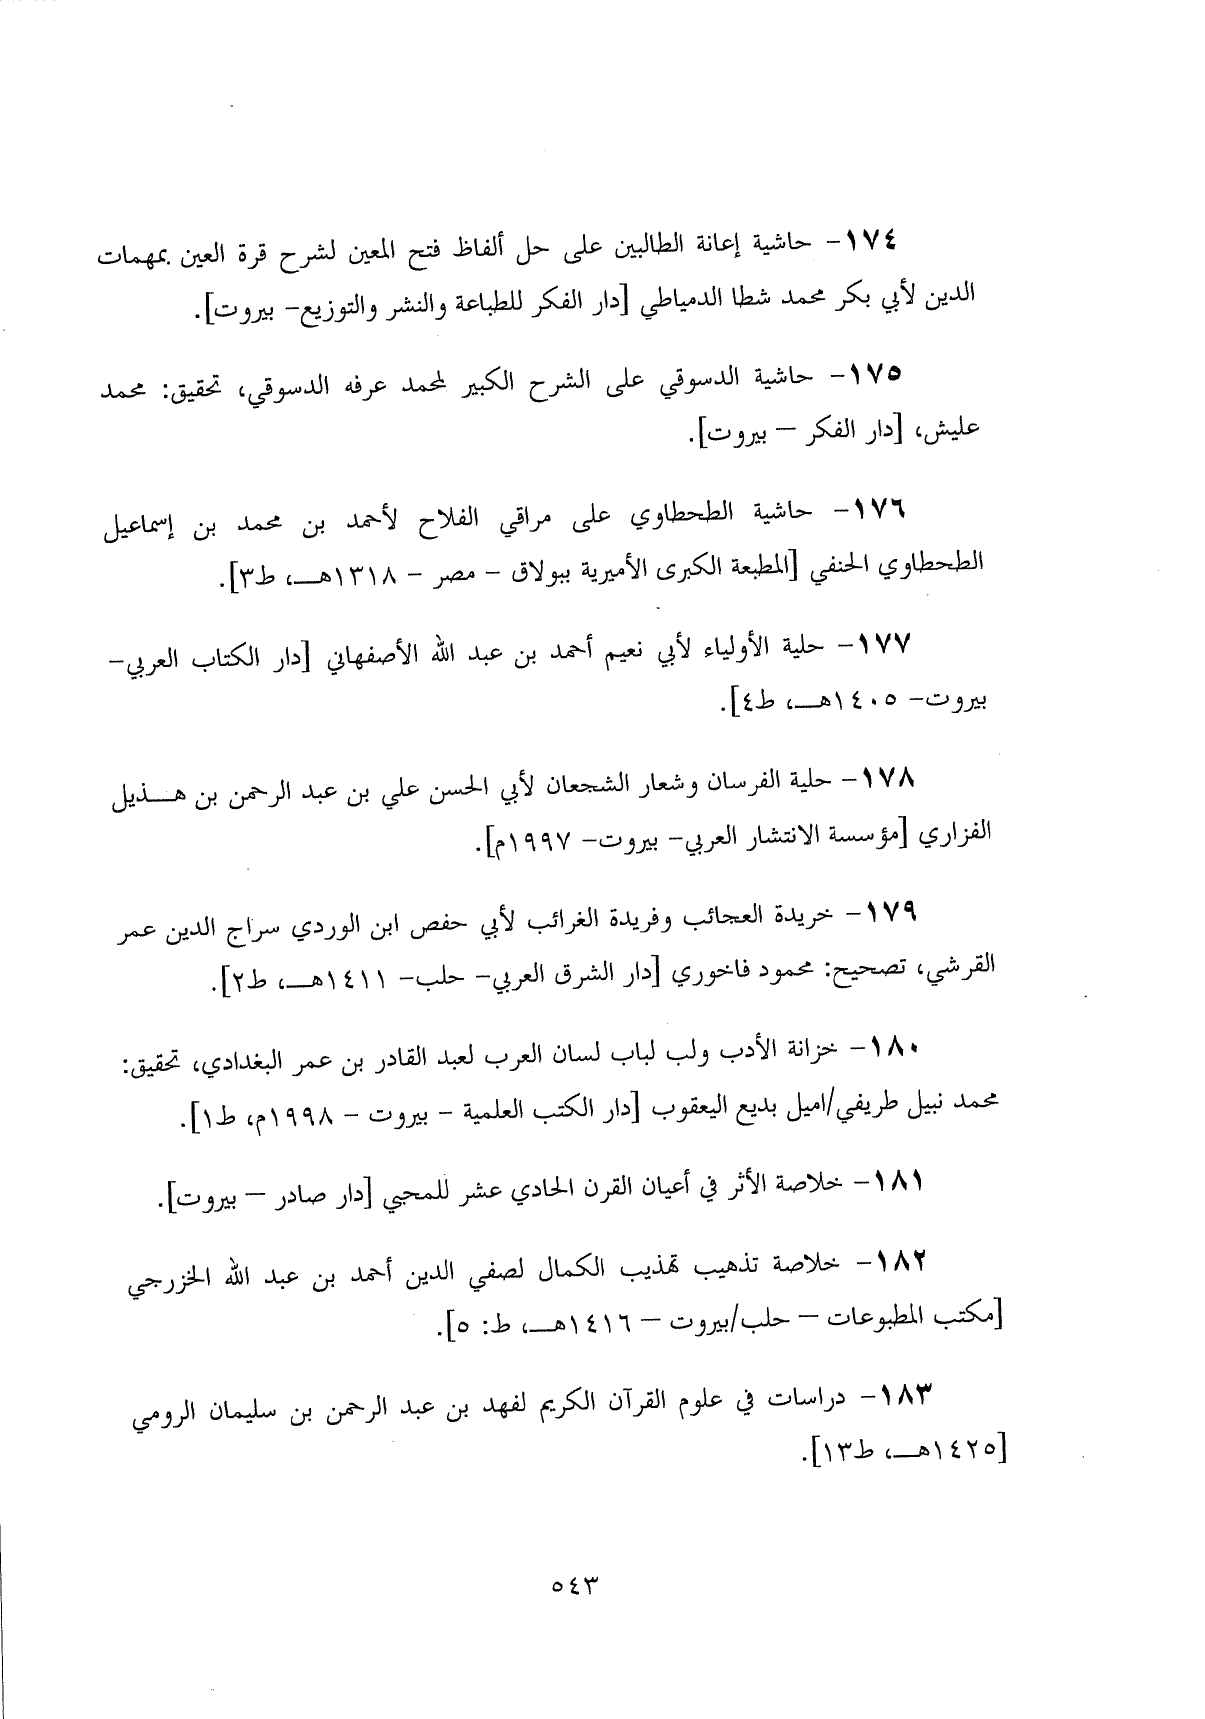 ١٧٤- حاشية إعانة الطالبين على حل ألفاظ فتح المعين لشرح قرة العين بمهمات
الدين لأبي بكر محمد شطا الدمياطي [دار الفكر للطباعة والنشر والتوزيع- بيروت].
١٧٥- حاشية الدسوقي على الشرح الكبير لمحمد عرفه الدسوقي، تحقيق: محمد
عليش، [دار الفكر – بيروت].
١٧٦- حاشية الطحطاوي على مراقي الفلاح لأحمد بن محمد بن إسماعيل
الطحطاوي الحنفي [المطبعة الكبرى الأميرية ببولاق - مصر - ١٣١٨هـ، ط٣].
١٧٧- حلية الأولياء لأبي نعيم أحمد بن عبد الله الأصفهاني [دار الكتاب العربي-
بيروت- ١٤٠٥هـ، ط٤].
١٧٨- حلية الفرسان وشعار الشجعان لأبي الحسن علي بن عبد الرحمن بن هـذيل
الفزاري [مؤسسة الانتشار العربي- بيروت- ١٩٩٧م].
١٧٩- خريدة العجائب وفريدة الغرائب لأبي حفص ابن الوردي سراج الدين عمر
القرشي، تصحيح: محمود فاخوري [دار الشرق العربي- حلب- ١٤١١هـ، ط٢].
١٨٠- خزانة الأدب ولب لباب لسان العرب لعبد القادر بن عمر البغدادي، تحقيق:
محمد نبيل طريفي/اميل بديع اليعقوب [دار الكتب العلمية - بيروت - ١٩٩٨م، ط١].
١٨١- خلاصة الأثر في أعيان القرن الحادي عشر للمحبي [دار صادر – بيروت].
١٨٢- خلاصة تذهيب تهذيب الكمال لصفي الدين أحمد بن عبد الله الخزرجي
[مكتب المطبوعات – حلب/بيروت – ١٤١٦هـ، ط: ٥].
١٨٣- دراسات في علوم القرآن الكريم لفهد بن عبد الرحمن بن سليمان الرومي
[١٤٢٥هـ، ط١٣].
٥٤٣